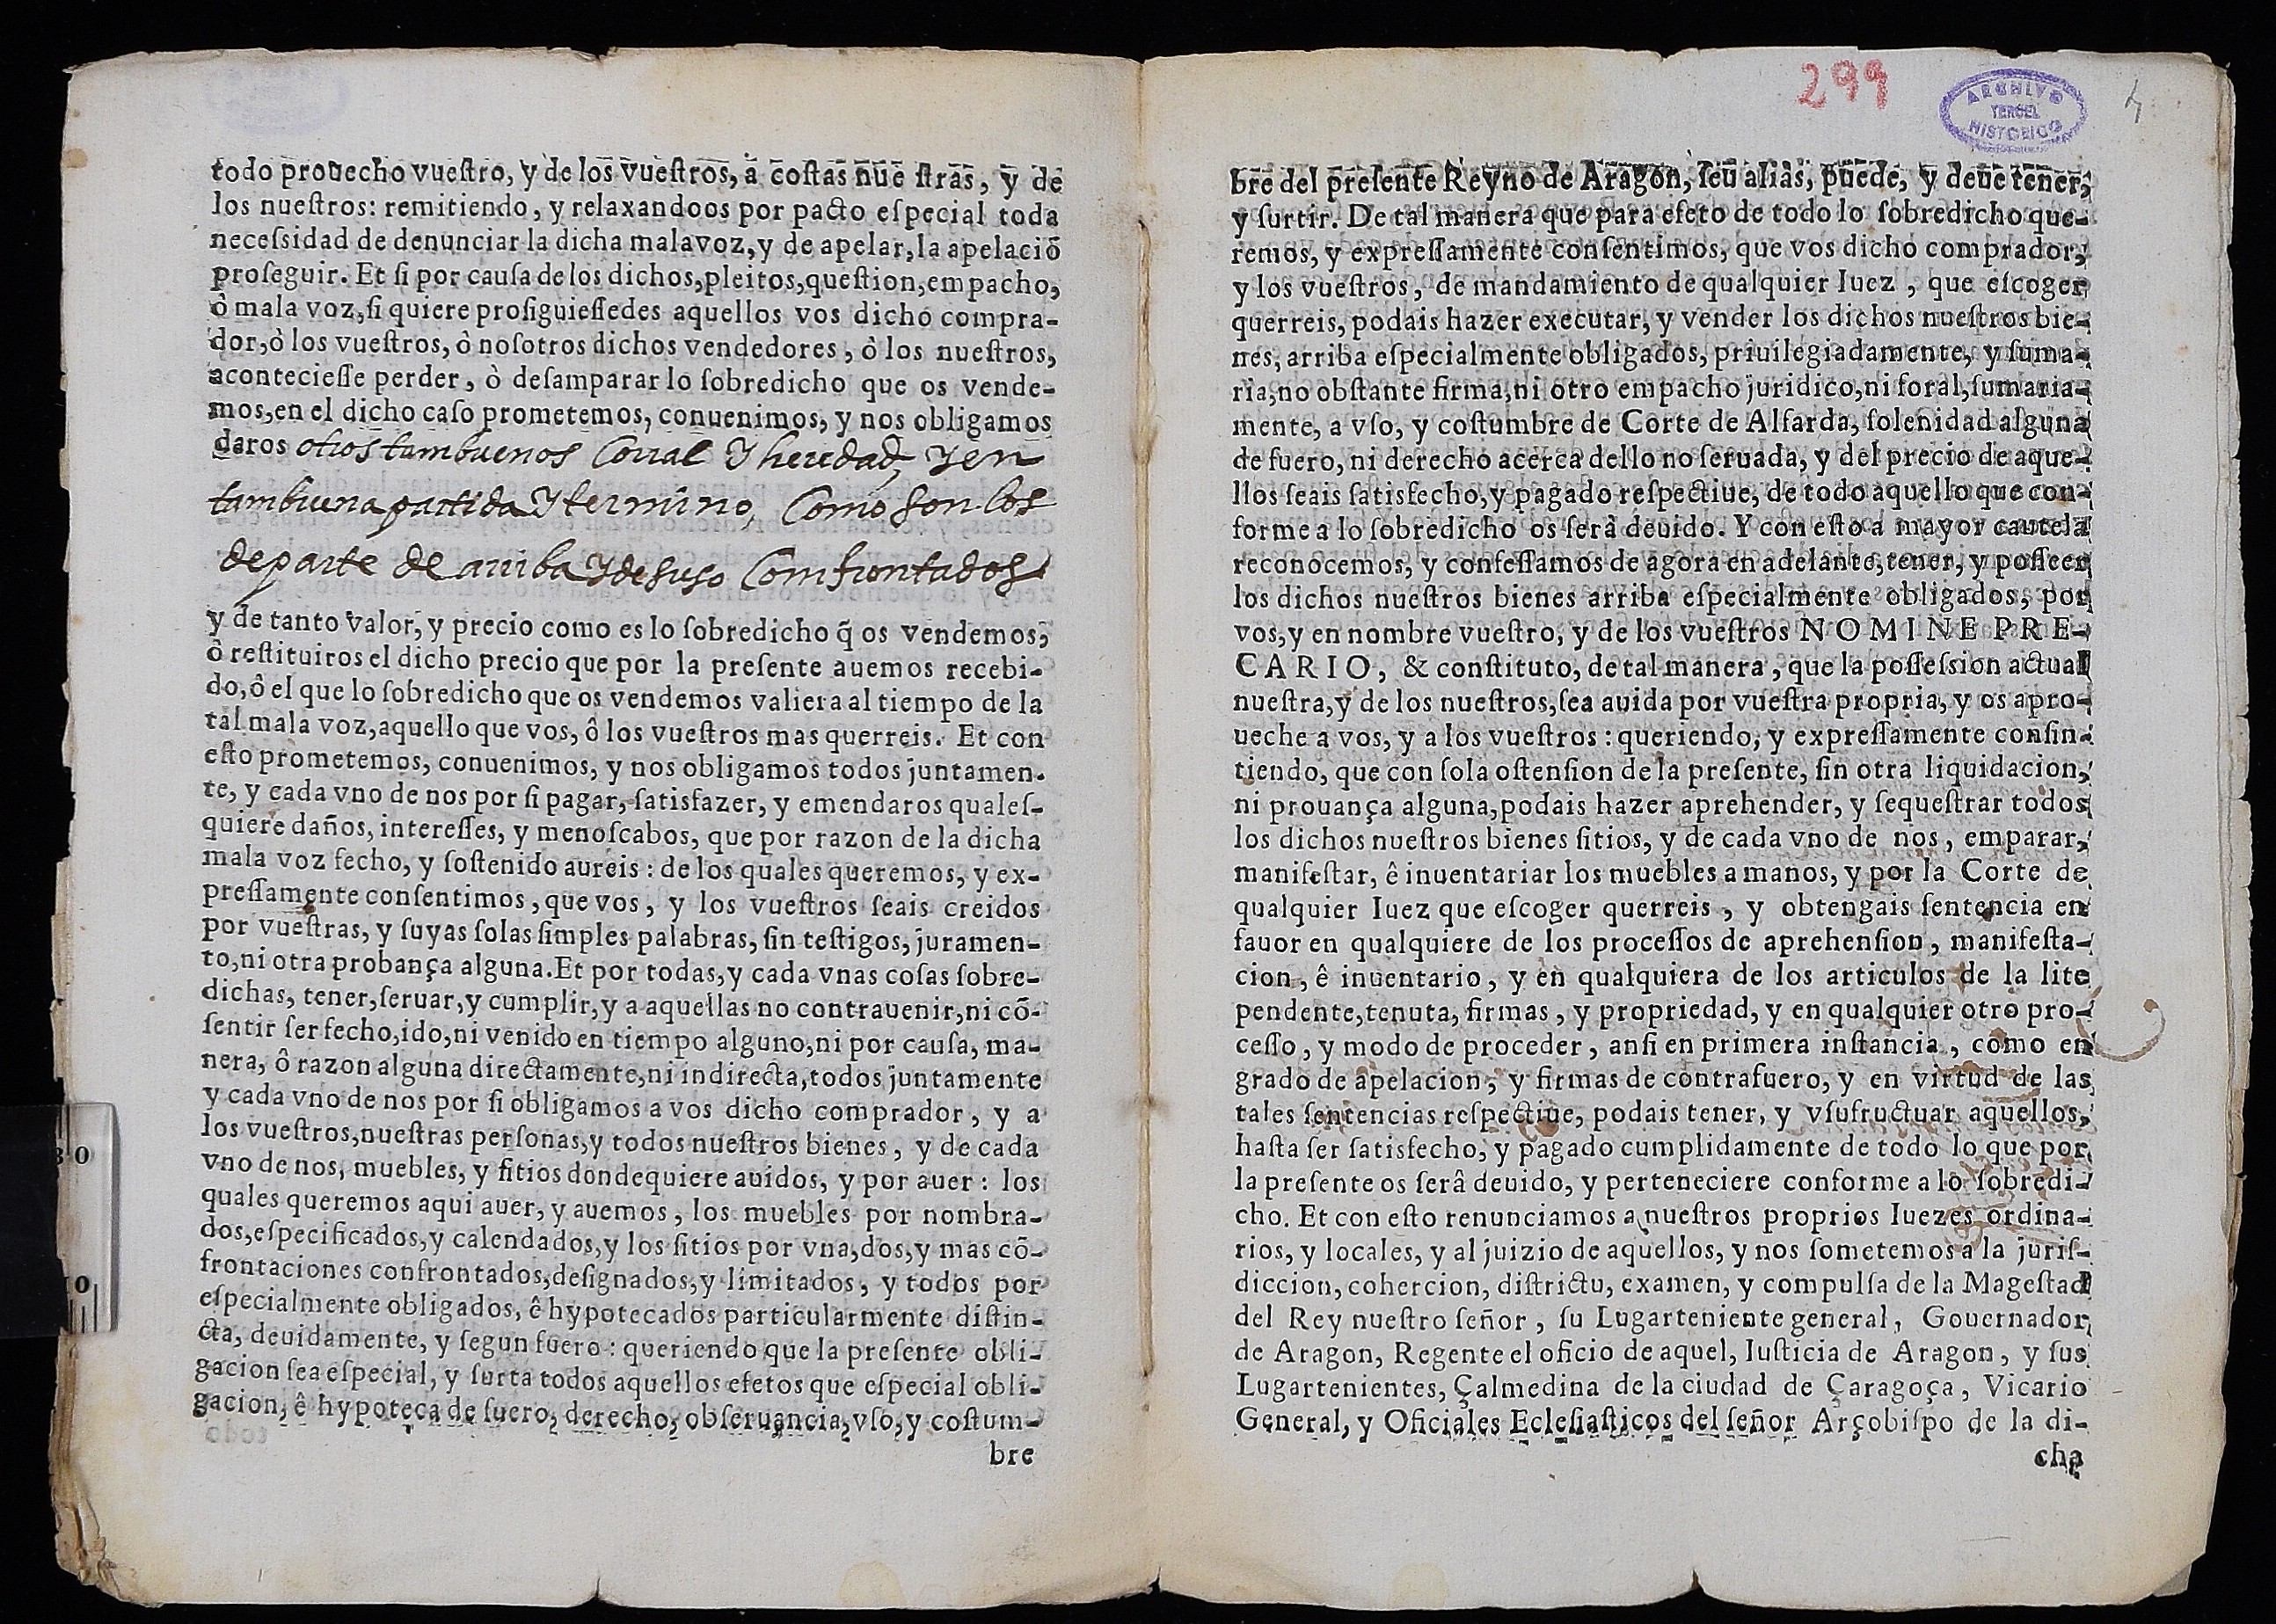 todo prouecho vueſtro, y de los vueſtros, a coſtas nue ſtras, y de
los nueſtros: remitiendo, y relaxandoos por pacto eſpecial toda
neceſsidad de denunciar la dicha malavoz, y de apelar, la apelaciõ
proſeguir. Et ſi por cauſa de los dichos, pleitos, queſtion, empacho,
ô mala voz, ſi quiere proſiguieſſedes aquellos vos dicho compra-
dor, ò los vueſtros, ô noſotros dichos vendedores, ò los nueſtros,
acontecieſſe perder, ò deſamparar lo ſobredicho que os vende-
mos, en el dicho caſo prometemos, conuenimos, y nos obligamos
daros otros tambuenos Corral Y heredad, Y en
tambuena partida Y termino, Como son los
de parte de arriba Y de suso Comfrontados
y de tanto valor, y precio como es lo ſobredicho q̃ os vendemos,
ô reſtituiros el dicho precio que por la preſente auemos recebi-
do, ô el que lo ſobredicho que os vendemos valiera al tiempo de la
tal mala voz, aquello que vos, ô los vueſtros mas querreis. Et con
eſto prometemos, conuenimos, y nos obligamos todos juntamen-
te, y cada vno de nos por ſi pagar, ſatisfazer, y emendaros qualeſ-
quiere daños, intereſſes, y menoſcabos, que por razon de la dicha
mala voz fecho, y ſoſtenido aureis: de los quales queremos, y ex-
preſſamente conſentimos, que vos, y los vueſtros ſeais creidos
por vueſtras, y ſuyas ſolas ſimples palabras, ſin teſtigos, juramen-
to, ni otra probança alguna. Et por todas, y cada vnas coſas ſobre-
dichas, tener, ſeruar, y cumplir, y a aquellas no contrauenir, ni cõ-
ſentir ſer fecho, ido, ni venido en tiempo alguno, ni por cauſa, ma-
nera, ô razon alguna directamente, ni indirecta, todos juntamente
y cada vno de nos por ſi obligamos a vos dicho comprador, y a
los vueſtros, nueſtras perſonas, y todos nueſtros bienes, y de cada
vno de nos, muebles, y ſitios dondequiere auidos, y por auer: los
quales queremos aqui auer, y auemos, los muebles por nombra-
dos, eſpecificados, y calendados, y los ſitios por vna, dos, y mas cõ-
frontaciones confrontados, deſignados, y limitados, y todos por
eſpecialmente obligados, ê hypotecados particularmente diſtin-
cta, deuidamente, y ſegun fuero: queriendo que la preſente obli-
gacion ſea eſpecial, y ſurta todos aquellos efetos que eſpecial obli-
gacion, ê hypoteca de fuero, derecho, obſeruancia, vſo, y coſtum-
bre
299
4
ARCHIVO
TERCEL
HISTORICO
bre del preſente Reyno de Aragon, ſeu alias, puede, y deue tener,
y ſurtir. De tal manera que para efeto de todo lo ſobredicho que-
remos, y expreſſamente conſentimos, que vos dicho comprador,
y los vueſtros, de mandamiento de qualquier Iuez, que eſcoger
querreis, podais hazer executar, y vender los dichos nueſtros bie-
nes, arriba eſpecialmente obligados, priuilegiadamente, y ſuma-
ria, no obſtante firma, ni otro empacho juridico, ni foral, ſumaria-
mente, a vſo, y coſtumbre de Corte de Alfarda, ſolenidad alguna
de fuero, ni derecho acerca dello no ſeruada, y del precio de aque-
llos ſeais ſatisfecho, y pagado reſpectiue, de todo aquello que con-
forme a lo ſobredicho os ſerà deuido. Y con eſto a mayor cautela
reconocemos, y confeſſamos de agora en adelante, tener, y poſſeer
los dichos nueſtros bienes arriba eſpecialmente obligados, por
vos, y en nombre vueſtro, y de los vueſtros NOMINE PRE-
CARIO, & conſtituto, de tal manera, que la poſſeſsion actual
nueſtra, y de los nueſtros, ſea auida por vueſtra propria, y os apro-
ueche a vos, y a los vueſtros: queriendo, y expreſſamente conſin-
tiendo, que con ſola oſtenſion de la preſente, ſin otra liquidacion,
ni prouança alguna, podais hazer aprehender, y ſequeſtrar todos
los dichos nueſtros bienes ſitios, y de cada vno de nos, emparar,
manifeſtar, ê inuentariar los muebles a manos, y por la Corte de
qualquier Iuez que eſcoger querreis, y obtengais ſentencia en
fauor en qualquiere de los proceſſos de aprehenſion, manifeſta-
cion, ê inuentario, y en qualquiera de los articulos de la lite
pendente, tenuta, firmas, y propriedad, y en qualquier otro pro-
ceſſo, y modo de proceder, anſi en primera inſtancia, como en
grado de apelacion, y firmas de contrafuero, y en virtud de las
tales ſentencias reſpectiue, podais tener, y vſufructuar aquellos,
haſta ſer ſatisfecho, y pagado cumplidamente de todo lo que por
la preſente os ſerâ deuido, y perteneciere conforme a lo ſobredi-
cho. Et con eſto renunciamos a nueſtros proprios Iuezes ordina-
rios, y locales, y al juizio de aquellos, y nos ſometemos a la juriſ-
diccion, cohercion, diſtrictu, examen, y compulſa de la Mageſtad
del Rey nueſtro ſeñor, ſu Lugarteniente general, Gouernador
de Aragon, Regente el oficio de aquel, Iuſticia de Aragon, y ſus
Lugartenientes, Çalmedina de la ciudad de Çaragoça, Vicario
General, y Oficiales Ecleſiaſticos del ſeñor Arçobiſpo de la di-
cha